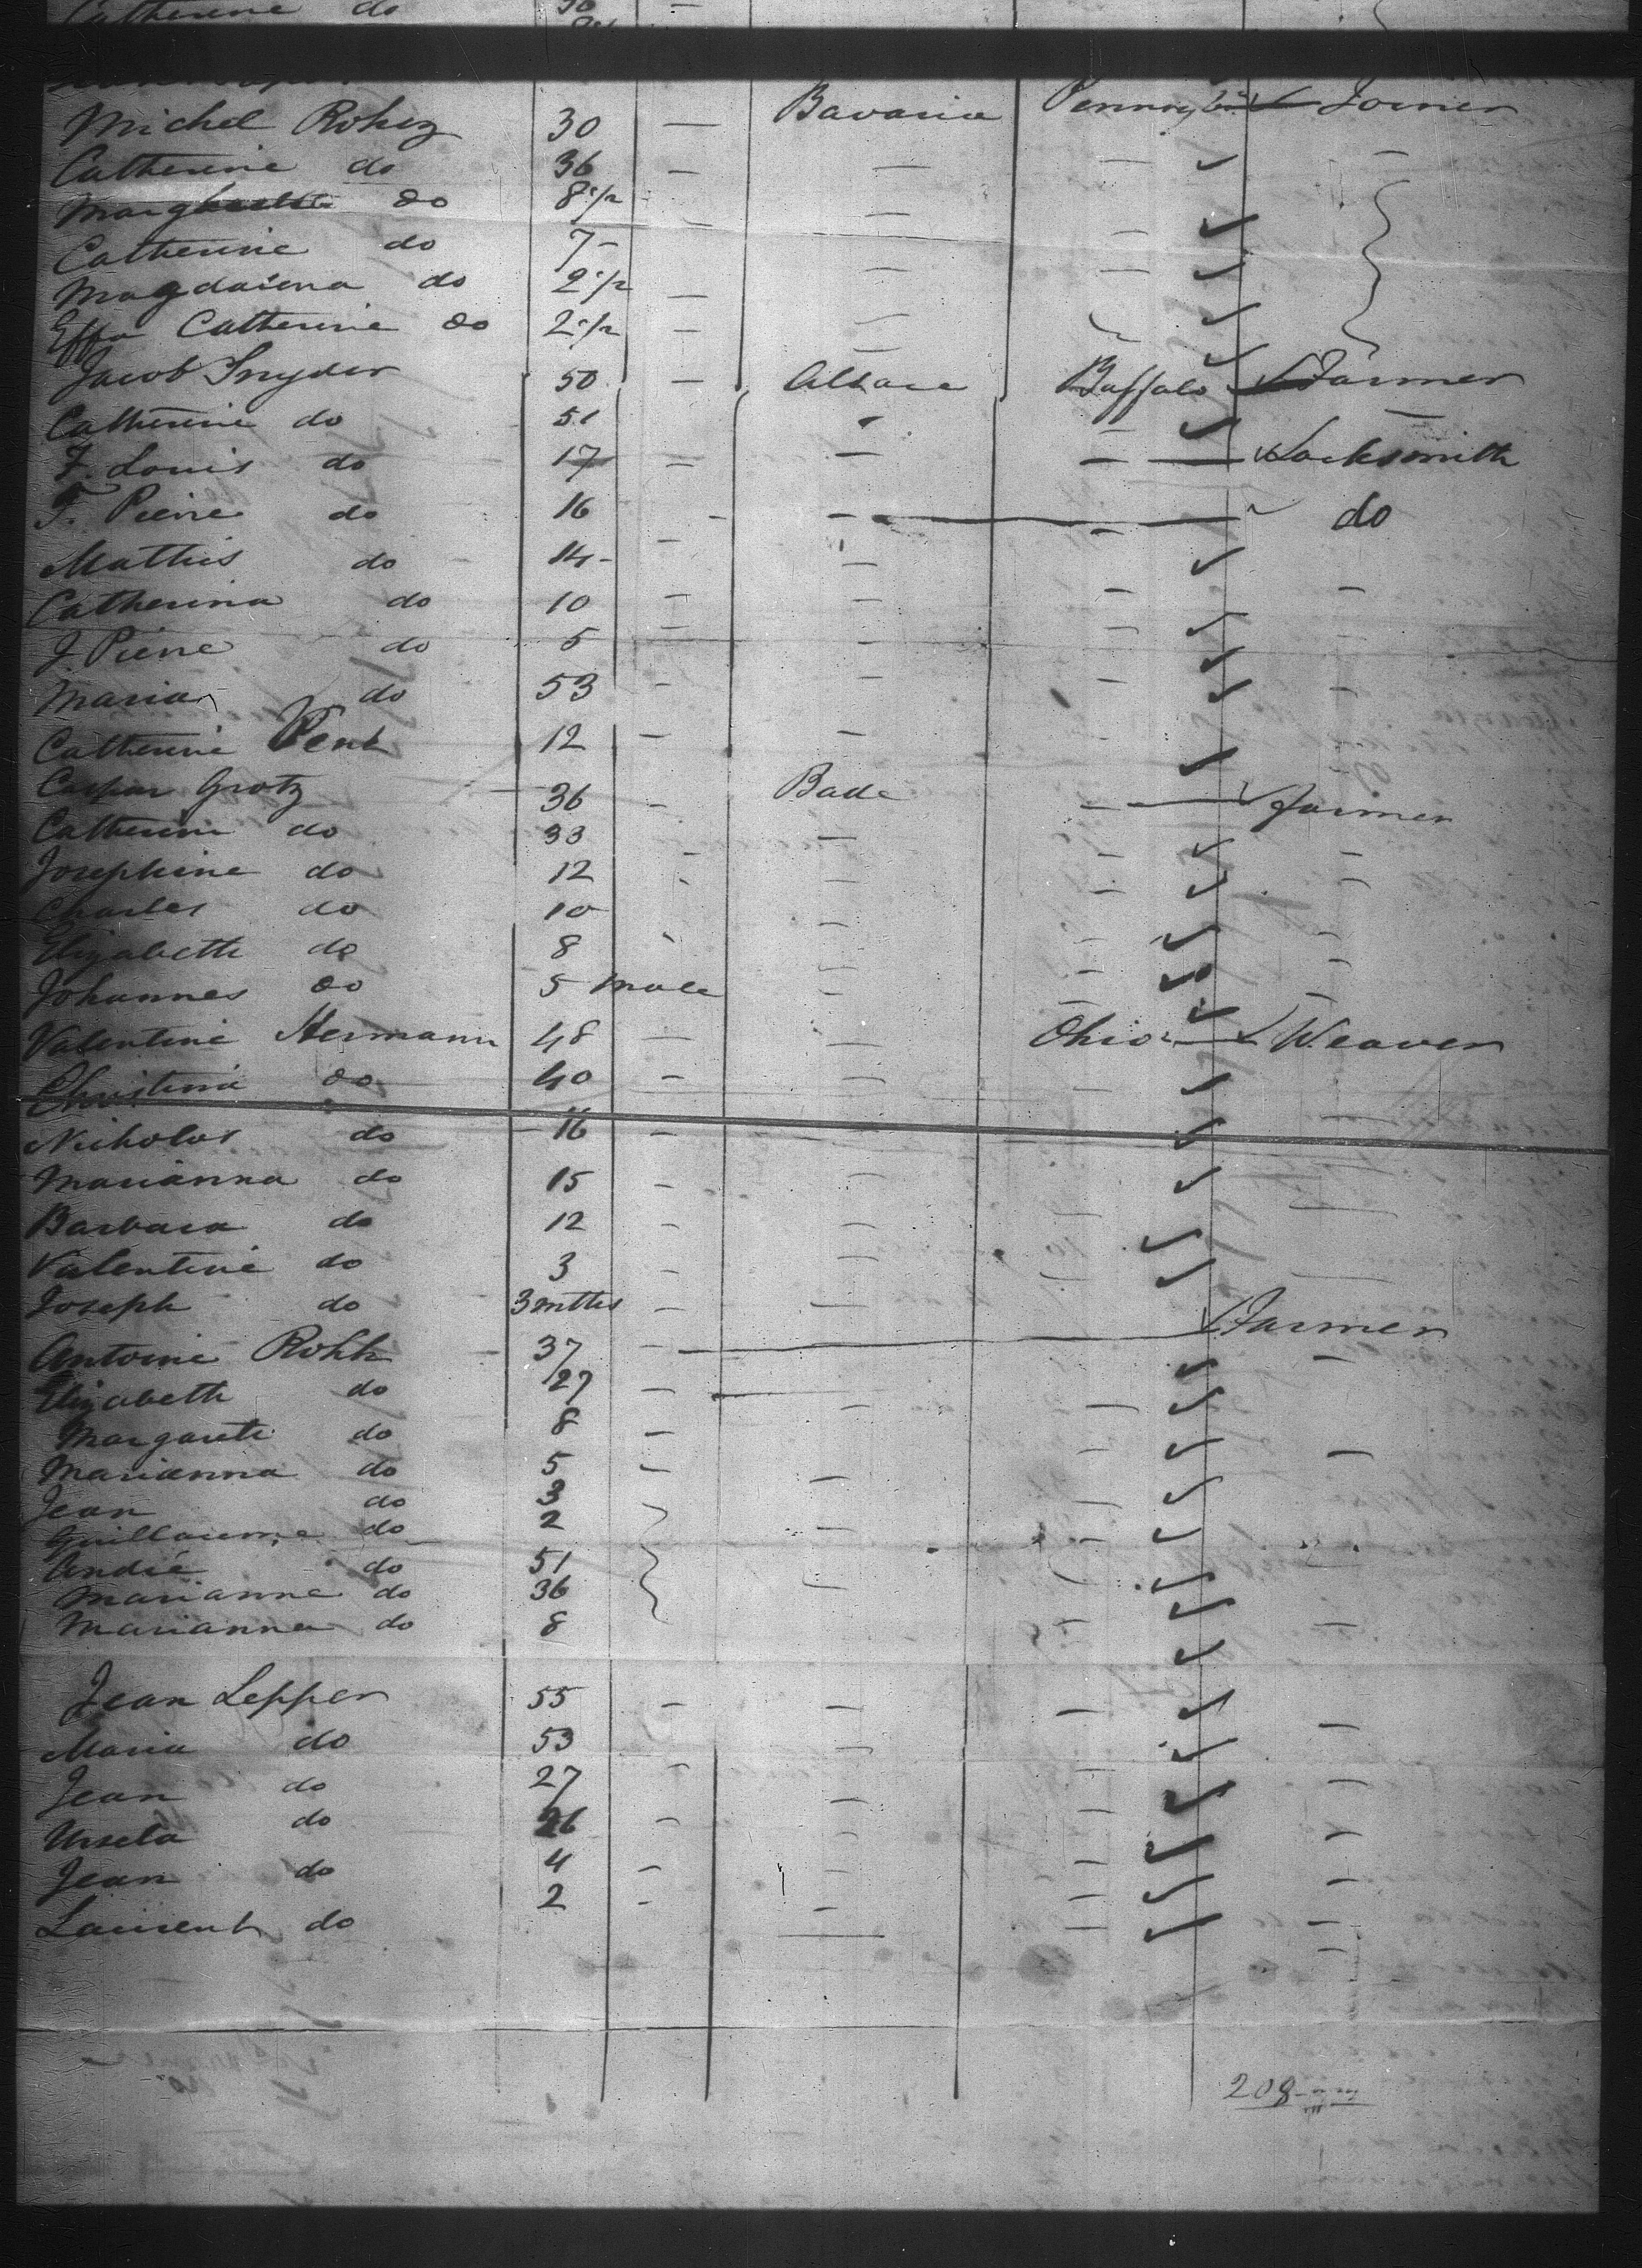 Catherine do 36
Michel Rohez 30 — Bavaria Pennsylv. Joiner
Catherine do 36 — — — —
Marghuilte do 8 1/2 - — —
Catherine do 7 - — —
Magdalena do 2 1/2 — — —
Effa Catherine do 2 1/2 —
Jacob Snyder 50 — Alsace Buffalo Farmer
Catherine do 51 - — —
F. Louis do 17 — — — Locksmith
F. Pierre do 16 - — — do
Mathis do 14 - — —
Catherina do 10 — — — —
J. Pierre do 5 — — —
Maria do 53 — — — —
Catherine Vent 12 — —
Caspar Grotz 36 - Bade — Farmer
Catherine do 33 —
Josephine do 12 - — — —
Charles do 10 - — — —
Elizabeth do 8 - — — —
Johannes do 5 male — — —
Valentine Hermann 48 — — Ohio Weaver
Christina do 40 — — —
Nicholas do 16 — — —
Marianna do 15 - —
Barbara do 12 - — —
Valentine do 3 — — — —
Joseph do 3 mths — —
Antoine Rohh 37 — Farmer
Elizabeth do 27 — —
Margarete do 8 — — —
Marianna do 5 — — —
Jean do 3 — —
Guillaume do 2 —
André do 51 —
Marianne do 36
Marianna do 8 — —
Jean Lepper 55 — — —
Maria do 53 — — —
Jean do 27 — — — —
Ursela do 26 — —
Jean do 4 — — — —
Laurent do 2 - — — —
208